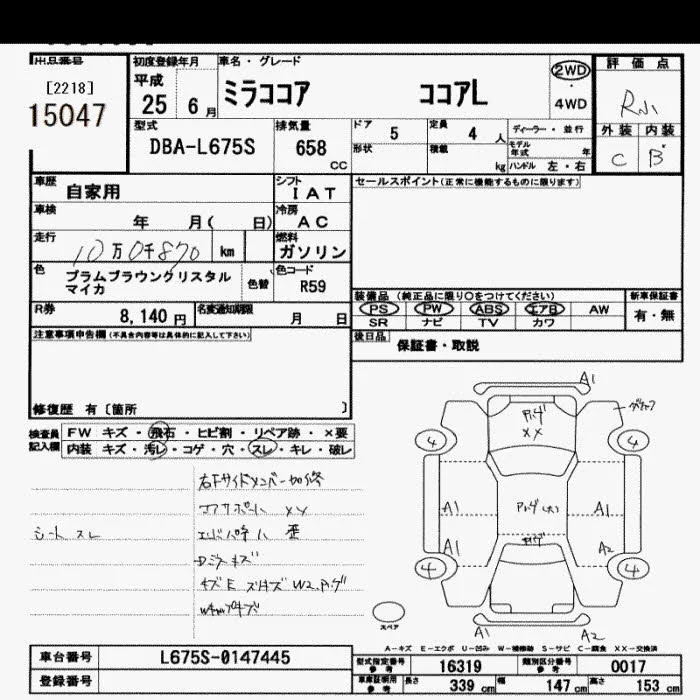 出品番号 初度登録年月 車名・グレード 評価点
[2218] 平成 ミラココア ココアL 2WD
15047 25 6月 4WD
型式 排気量 ドア 5 定員 4人 ディーラー・並行 外装 内装
DBA-L675S 658 CC 形状 積載 kg モデル年式 年 C B
ハンドル 左・右
車歴 自家用 シフト IAT セールスポイント(正常に機能するものに限ります)
車検 年 月( 日) 冷房 AC
走行 10万0千870 km 燃料 ガソリン
色 プラムブラウンクリスタル 色替 色コード R59
マイカ
装備品 (純正品に限り○をつけてください) 新車保証書
R券 8,140円 名変通知期限 月 日 PS PW ABS エアB AW 有・無
SR ナビ TV カワ
注意事項申告欄(不具合内容等は具体的に記入して下さい) 後日品 保証書・取説
修復歴 有〔箇所 〕
検査員記入欄 FW キズ・飛石・ヒビ割・リペア跡・×要
内装 キズ・汚レ・コゲ・穴・スレ・キレ・破レ
シート スレ
コアサポート XX
A1
XX
4 4
A1 A1
A1 A2
4 4
スペア
A1 A2
A-キズ E-エクボ U-凹み W-補修跡 S-サビ C-腐食 XX-交換済
車台番号 L675S-0147445 型式指定番号 参考 16319 類別区分番号 参考 0017
登録番号 車庫証明用 参考 長さ 339 cm 幅 147 cm 高さ 153 cm